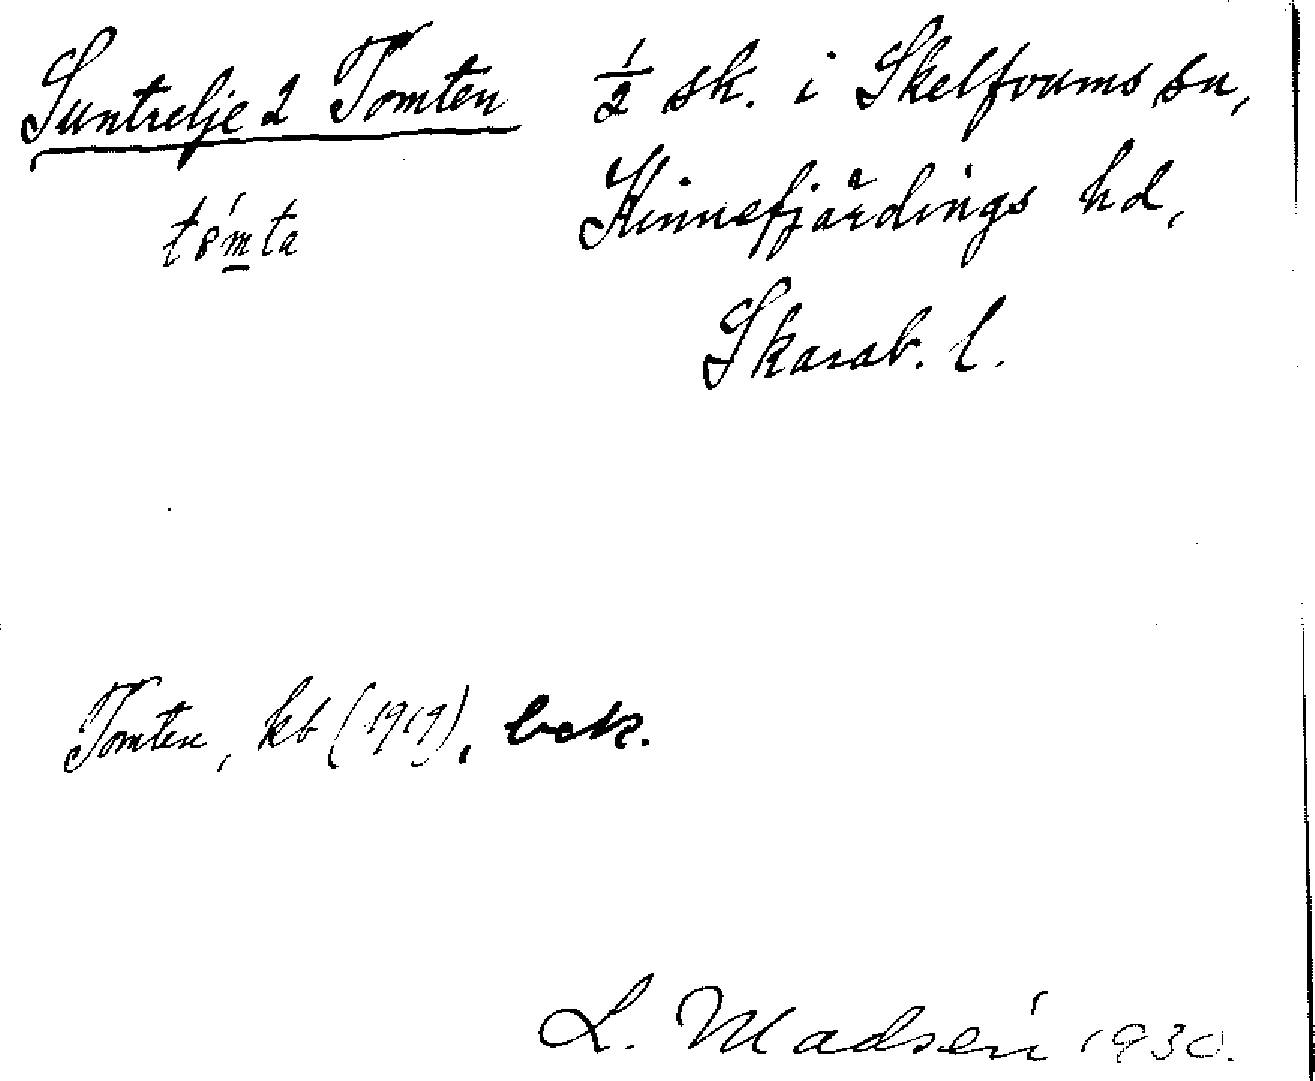 Suntrelje 2 Tomten ½ sk. i Skelfvums sn,
tómta Kinnefjärdings hd,
Skarab. l.
Tomten, kb (1919), bek.
L. Madsén 1930.